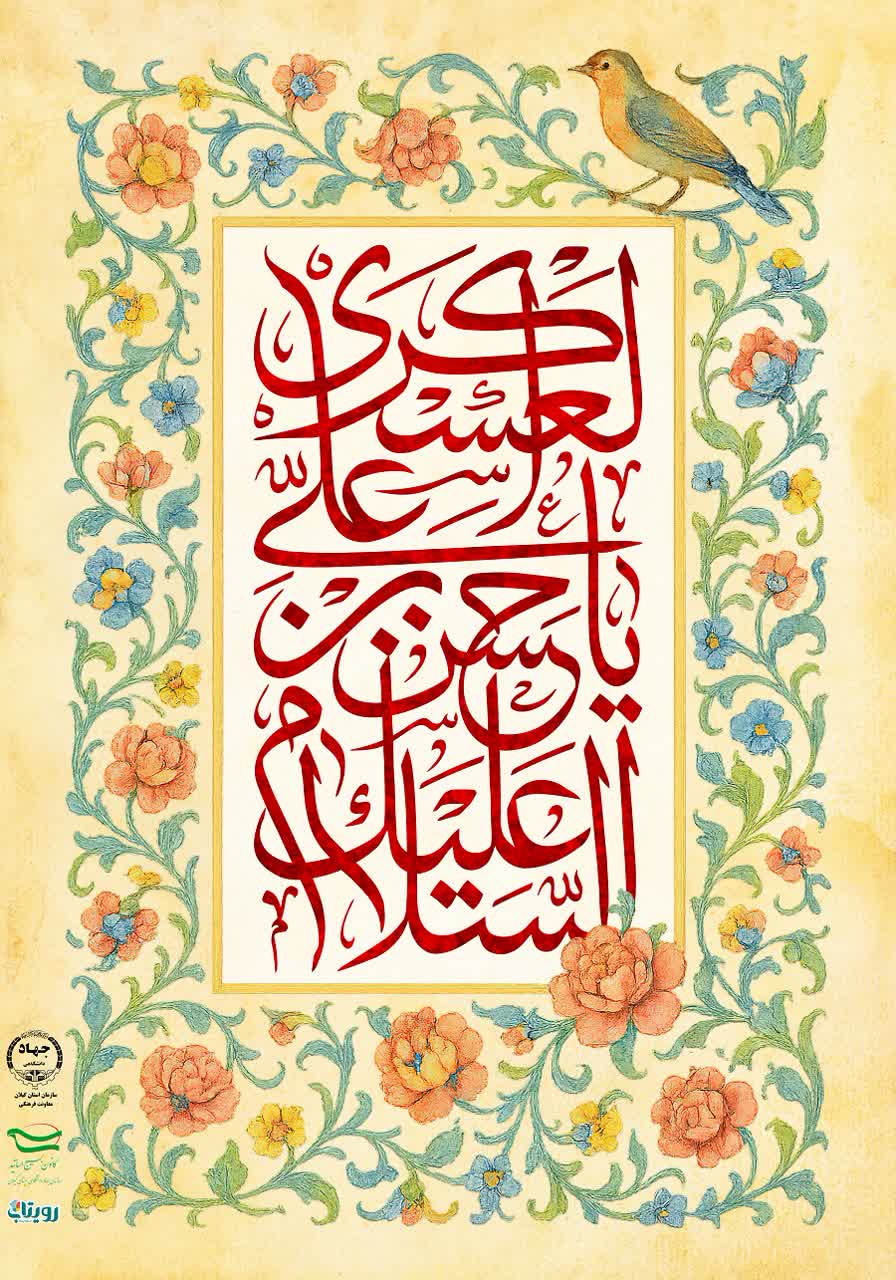 السّلام علیک
یا حسن بن علیّ
العسکری
جهاد
دانشگاهی
سازمان استان گیلان
معاونت فرهنگی
رویتاب